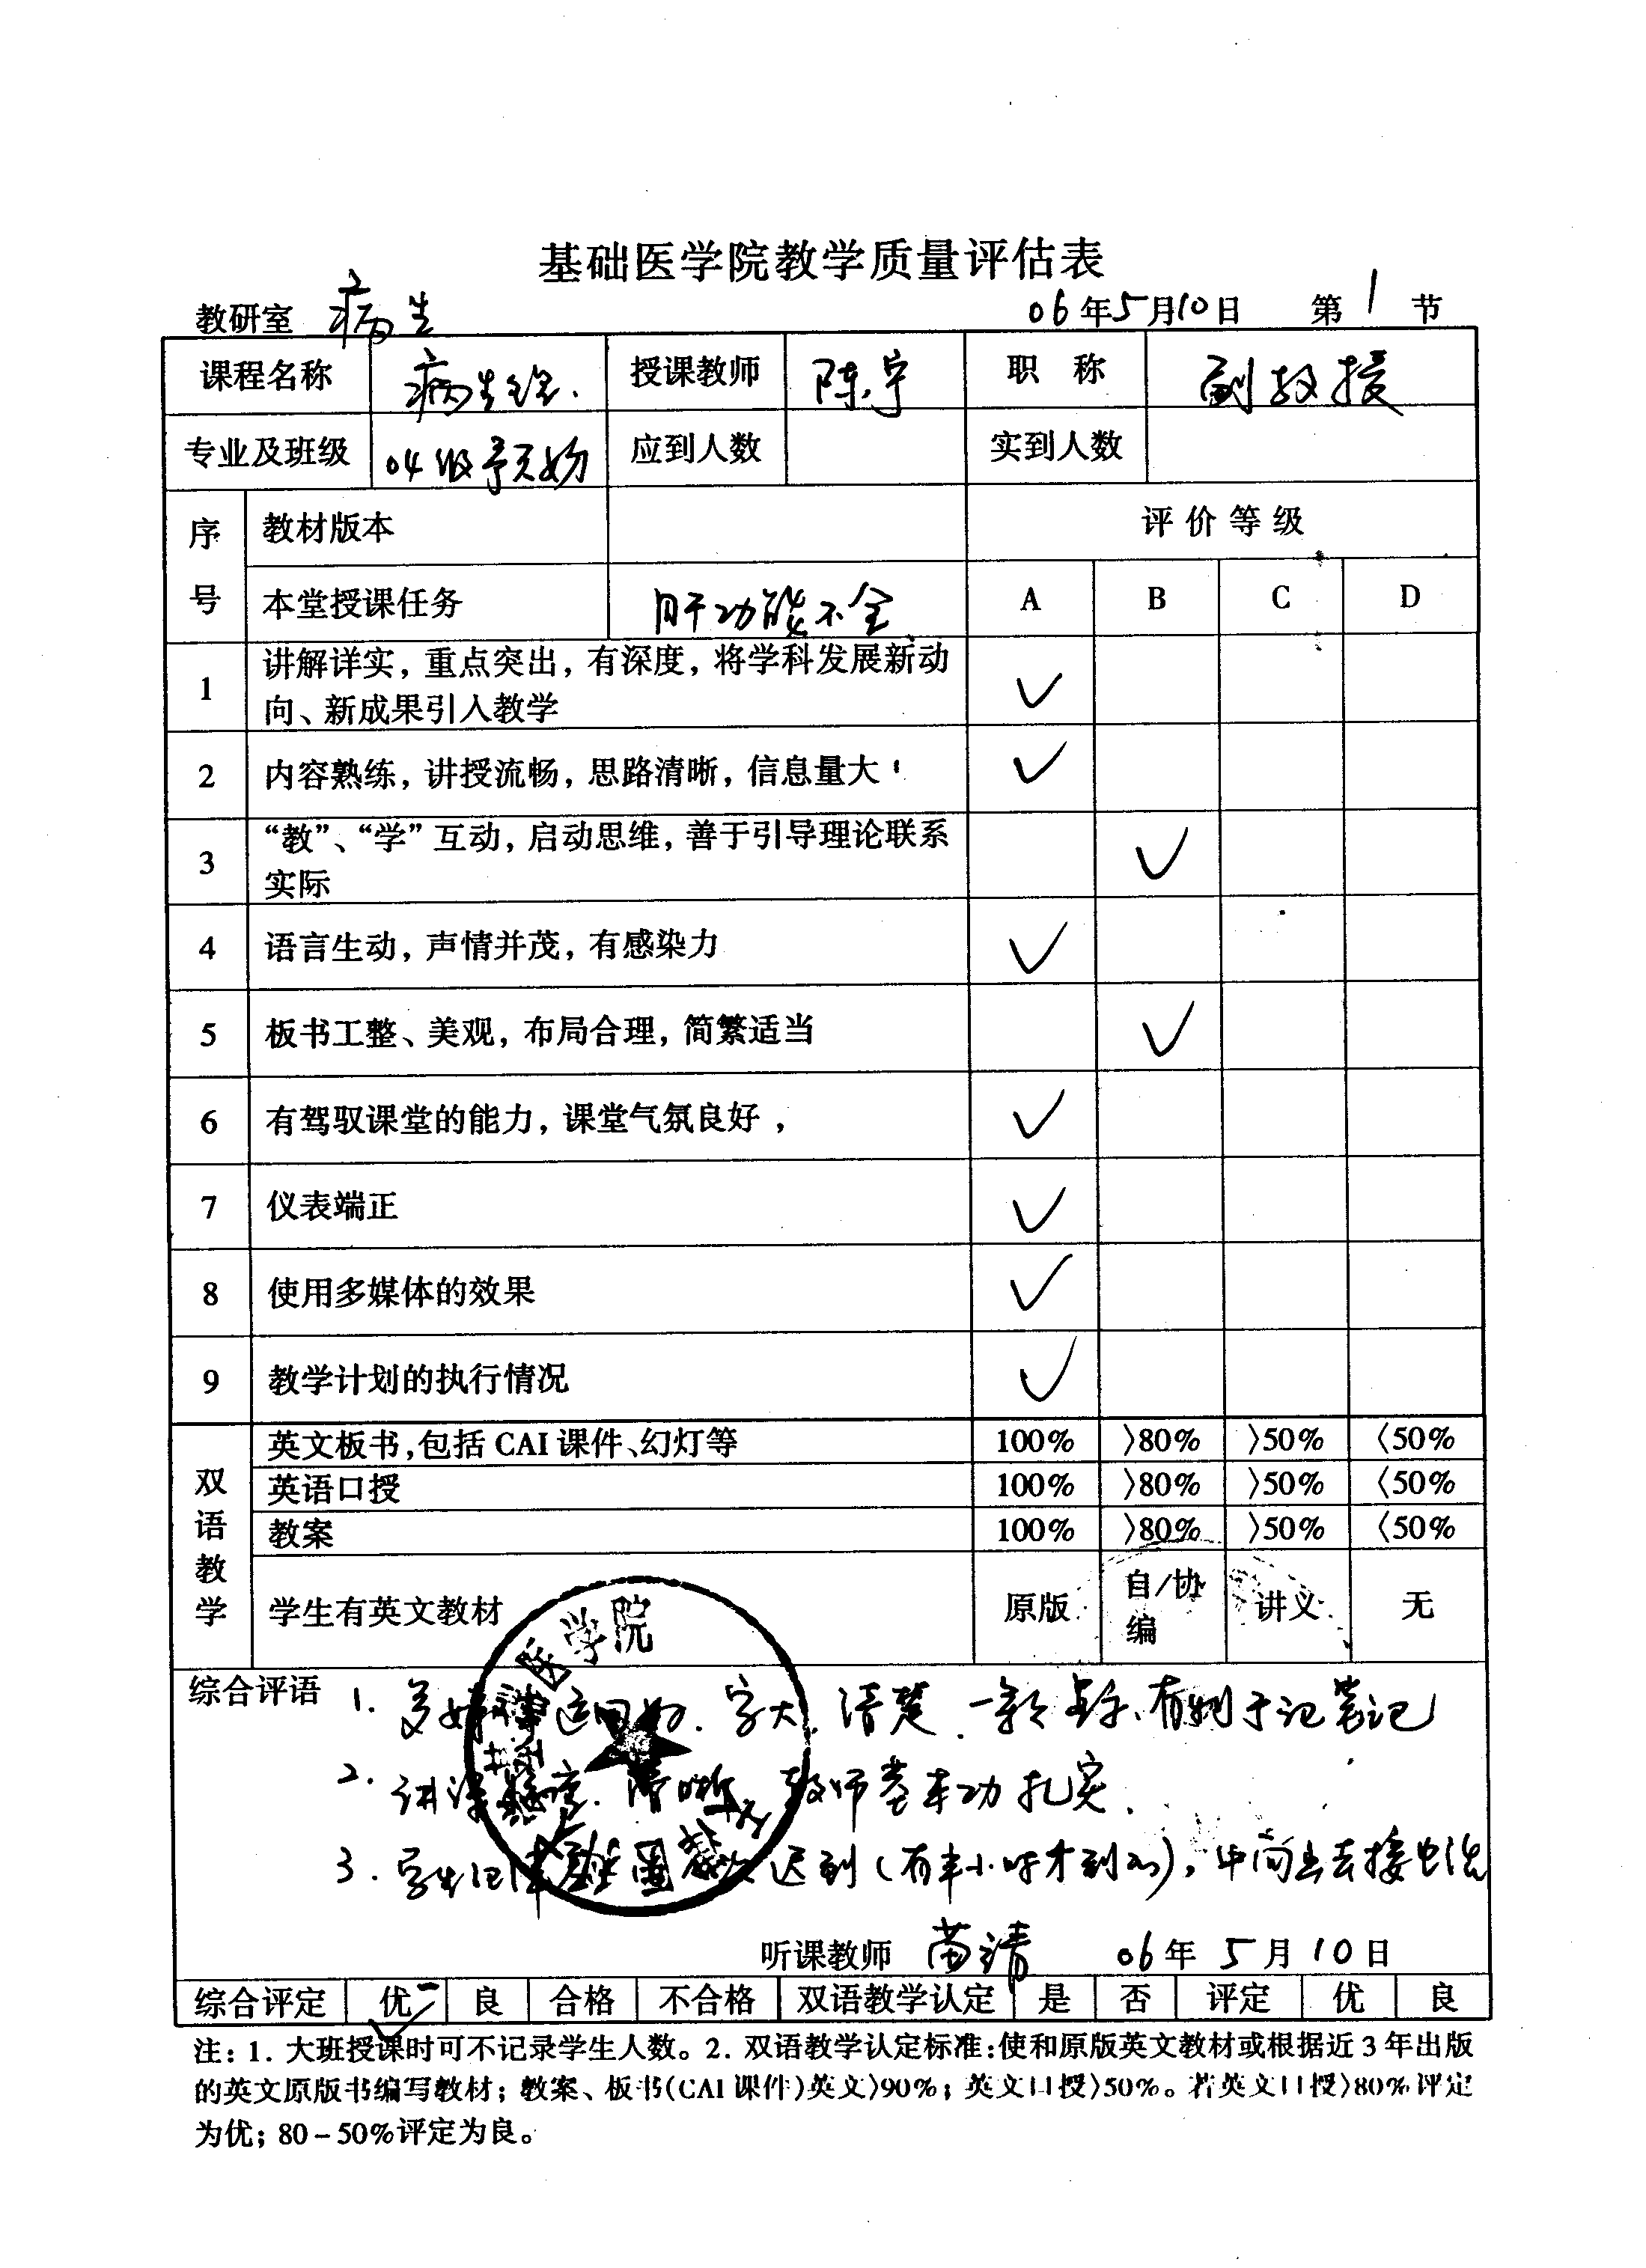 基础医学院教学质量评估表
教研室 病生 06年5月10日 第1节
课程名称 病生理. 授课教师 陈宇 职称 副教授
专业及班级 04级 应到人数 实到人数
序号 教材版本 评价等级
本堂授课任务 肝功能不全 A B C D
1 讲解详实，重点突出，有深度，将学科发展新动
向、新成果引入教学 ✓
2 内容熟练，讲授流畅，思路清晰，信息量大 ✓
3 “教”、“学”互动，启动思维，善于引导理论联系
实际 ✓
4 语言生动，声情并茂，有感染力 ✓
5 板书工整、美观，布局合理，简繁适当 ✓
6 有驾驭课堂的能力，课堂气氛良好， ✓
7 仪表端正 ✓
8 使用多媒体的效果 ✓
9 教学计划的执行情况 ✓
双语教学
英文板书,包括CAI课件、幻灯等 100% 〉80% 〉50% 〈50%
英语口授 100% 〉80% 〉50% 〈50%
教案 100% 〉80% 〉50% 〈50%
学生有英文教材 原版 自/协编 讲义 无
医学院
综合评语 1. 字大，清楚. 有利于记笔记
2. 清晰 教师基本功扎实.
3. 学生 迟到(有半小时才到的)，中间出去接电话
听课教师 苗靖 06年5月10日
综合评定 优✓ 良 合格 不合格 双语教学认定 是 否 评定 优 良
注：1. 大班授课时可不记录学生人数。2. 双语教学认定标准:使和原版英文教材或根据近3年出版
的英文原版书编写教材；教案、板书(CAI课件)英文〉90%；英文口授〉50%。若英文口授〉80%评定
为优；80－50%评定为良。